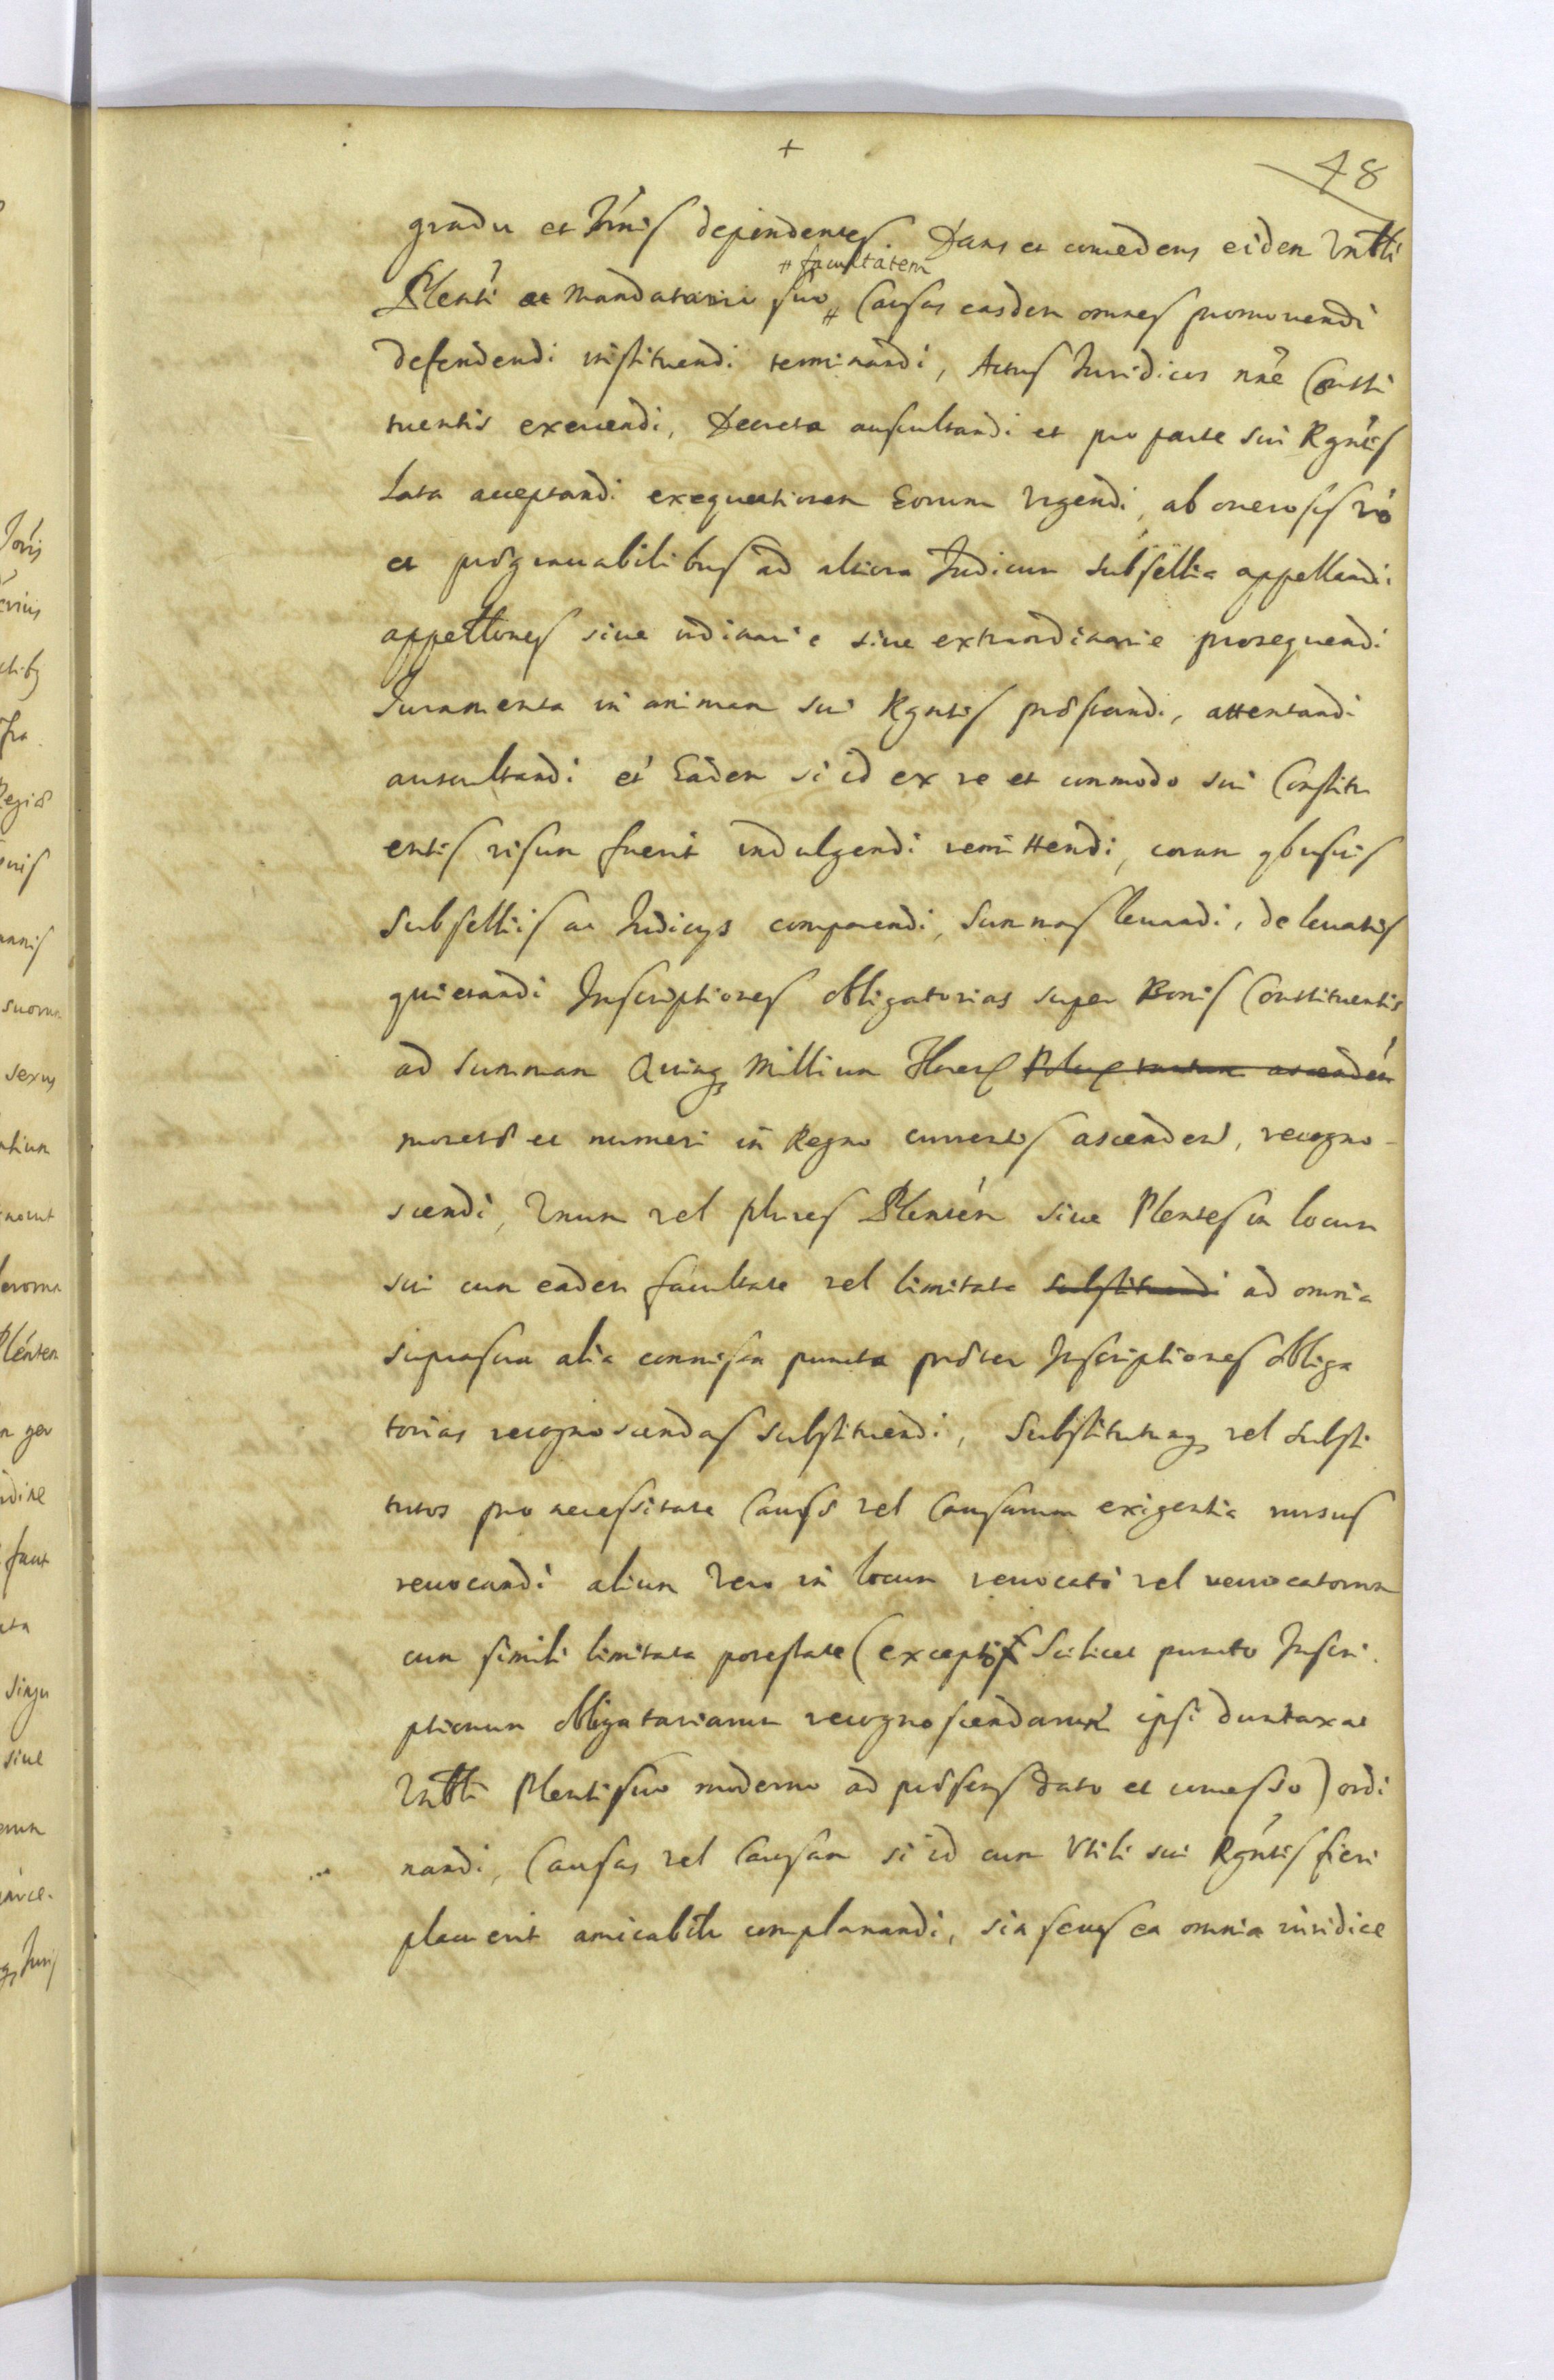 +
48
gradu et Juris dependentes. Dans et concedens eidem Vntti
# facultatem
Plenti ac Mandatario suo # Causas easdem omnes promovendi
defendendi instituendi terminandi, Actus Juridicos nne Consti
tuentis exercendi, Decreta auscultandi et pro parte sui Rgntis
Lata acceptandi exequutionem Eorum Vrgendi, ab onerosis vo
et prægrauabilibus ad altiora Judicum subsellia appellandi
appettones siue ordinarie siue extraordinarie prosequendi
Juramenta in animam sui Rgntis præstandi, attentandi
auscultandi et Eadem si id ex re et commodo sui Constitu
entis visum fuerit indulgendi remittendi, coram gbusuis
subselliis ac Judicys comparendi, Summas leuandi, de leuatis
quietandi Inscriptiones obligatorias super Bonis Constituentis
ad summam Quinq Millium Floren Polux tantum ascenden
monetæ et numeri in Regno currentis ascenden, recogno-
scendi, Vnum vel plures Plentem siue Plentes in locum
sui cum eadem facultate vel limitata substituendi ad omnia
suprascra alia commissa puncta præter Inscriptiones obliga
torias recognoscendas substituendi, Substitutumq vel substi
tutos pro necessitate Causæ vel Causarum exigentia rursus
reuocandi alium Vero in locum reuocati vel reuocatorum
cum simili limitata potestate (excepto Scilicet puncto Inscri
ptionum obligatoriarum recognoscendarum ipsi duntaxat
Vntti Plenti suo moderno ad præsens dato et concesso) ordi
nandi, Causas vel Causam si id cum Vtili sui Rgntis fieri
placuerit amicabilr complanandi, sin secus ea omnia iuridice